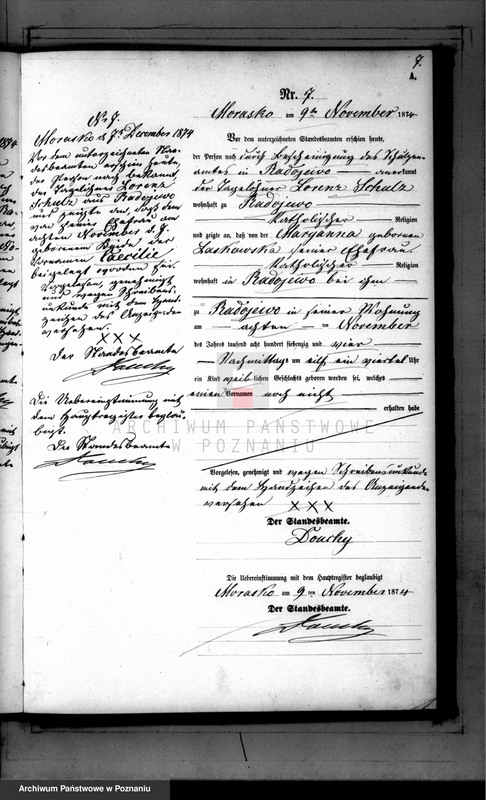 7.
A.
Nr. 7.
Morasko am 9ten November 1874
Vor dem unterzeichneten Standesbeamten erschien heute,
der Person nach durch Bescheinigung des Schulzen-
amtes in Radojewo anerkannt
der Tagelöhner Lorenz Schulz
wohnhaft zu Radojewo
katholischer Religion
und zeigte an, daß von der Maryanna geborenen
Laskowska seiner Ehefrau
katholischer Religion
wohnhaft in Radojewo bei ihm
zu Radojewo in seiner Wohnung
am achten ten November
des Jahres tausend acht hundert siebenzig und vier
Nachmittags um eilf ein viertel Uhr
ein Kind weiblichen Geschlechts geboren worden sei, welches
einen Vornamen noch nicht
erhalten habe
Vorgelesen, genehmigt und wegen Schreibensunkunde
mit dem Handzeichen des Anzeigenden
versehen
XXX
Der Standesbeamte.
Douchy
Die Uebereinstimmung mit dem Hauptregister beglaubigt
Morasko am 9ten November 1874
Der Standesbeamte.
Douchy
No 7.
Morasko d. 7t December 1874
Vor dem unterzeichneten Stan-
desbeamten erschien heute,
der Person nach bekannt,
der Tagelöhner Lorenz
Schulz aus Radojewo
und zeigte an, daß dem
von seiner Ehefrau am
achten November d. J.
geborenen Kinde der
Vornamen Caecilie
beigelegt worden sei.
Vorgelesen, genehmigt
und wegen Schreibens-
unkunde mit dem Hand-
zeichen des Anzeigenden
versehen.
XXX
Der Standesbeamte
Douchy
Die Uebereinstimmung mit
dem Hauptregister beglau-
bigt.
Der Standesbeamte
Douchy
ARCHIWUM PAŃSTWOWE
W POZNANIU
Archiwum Państwowe w Poznaniu